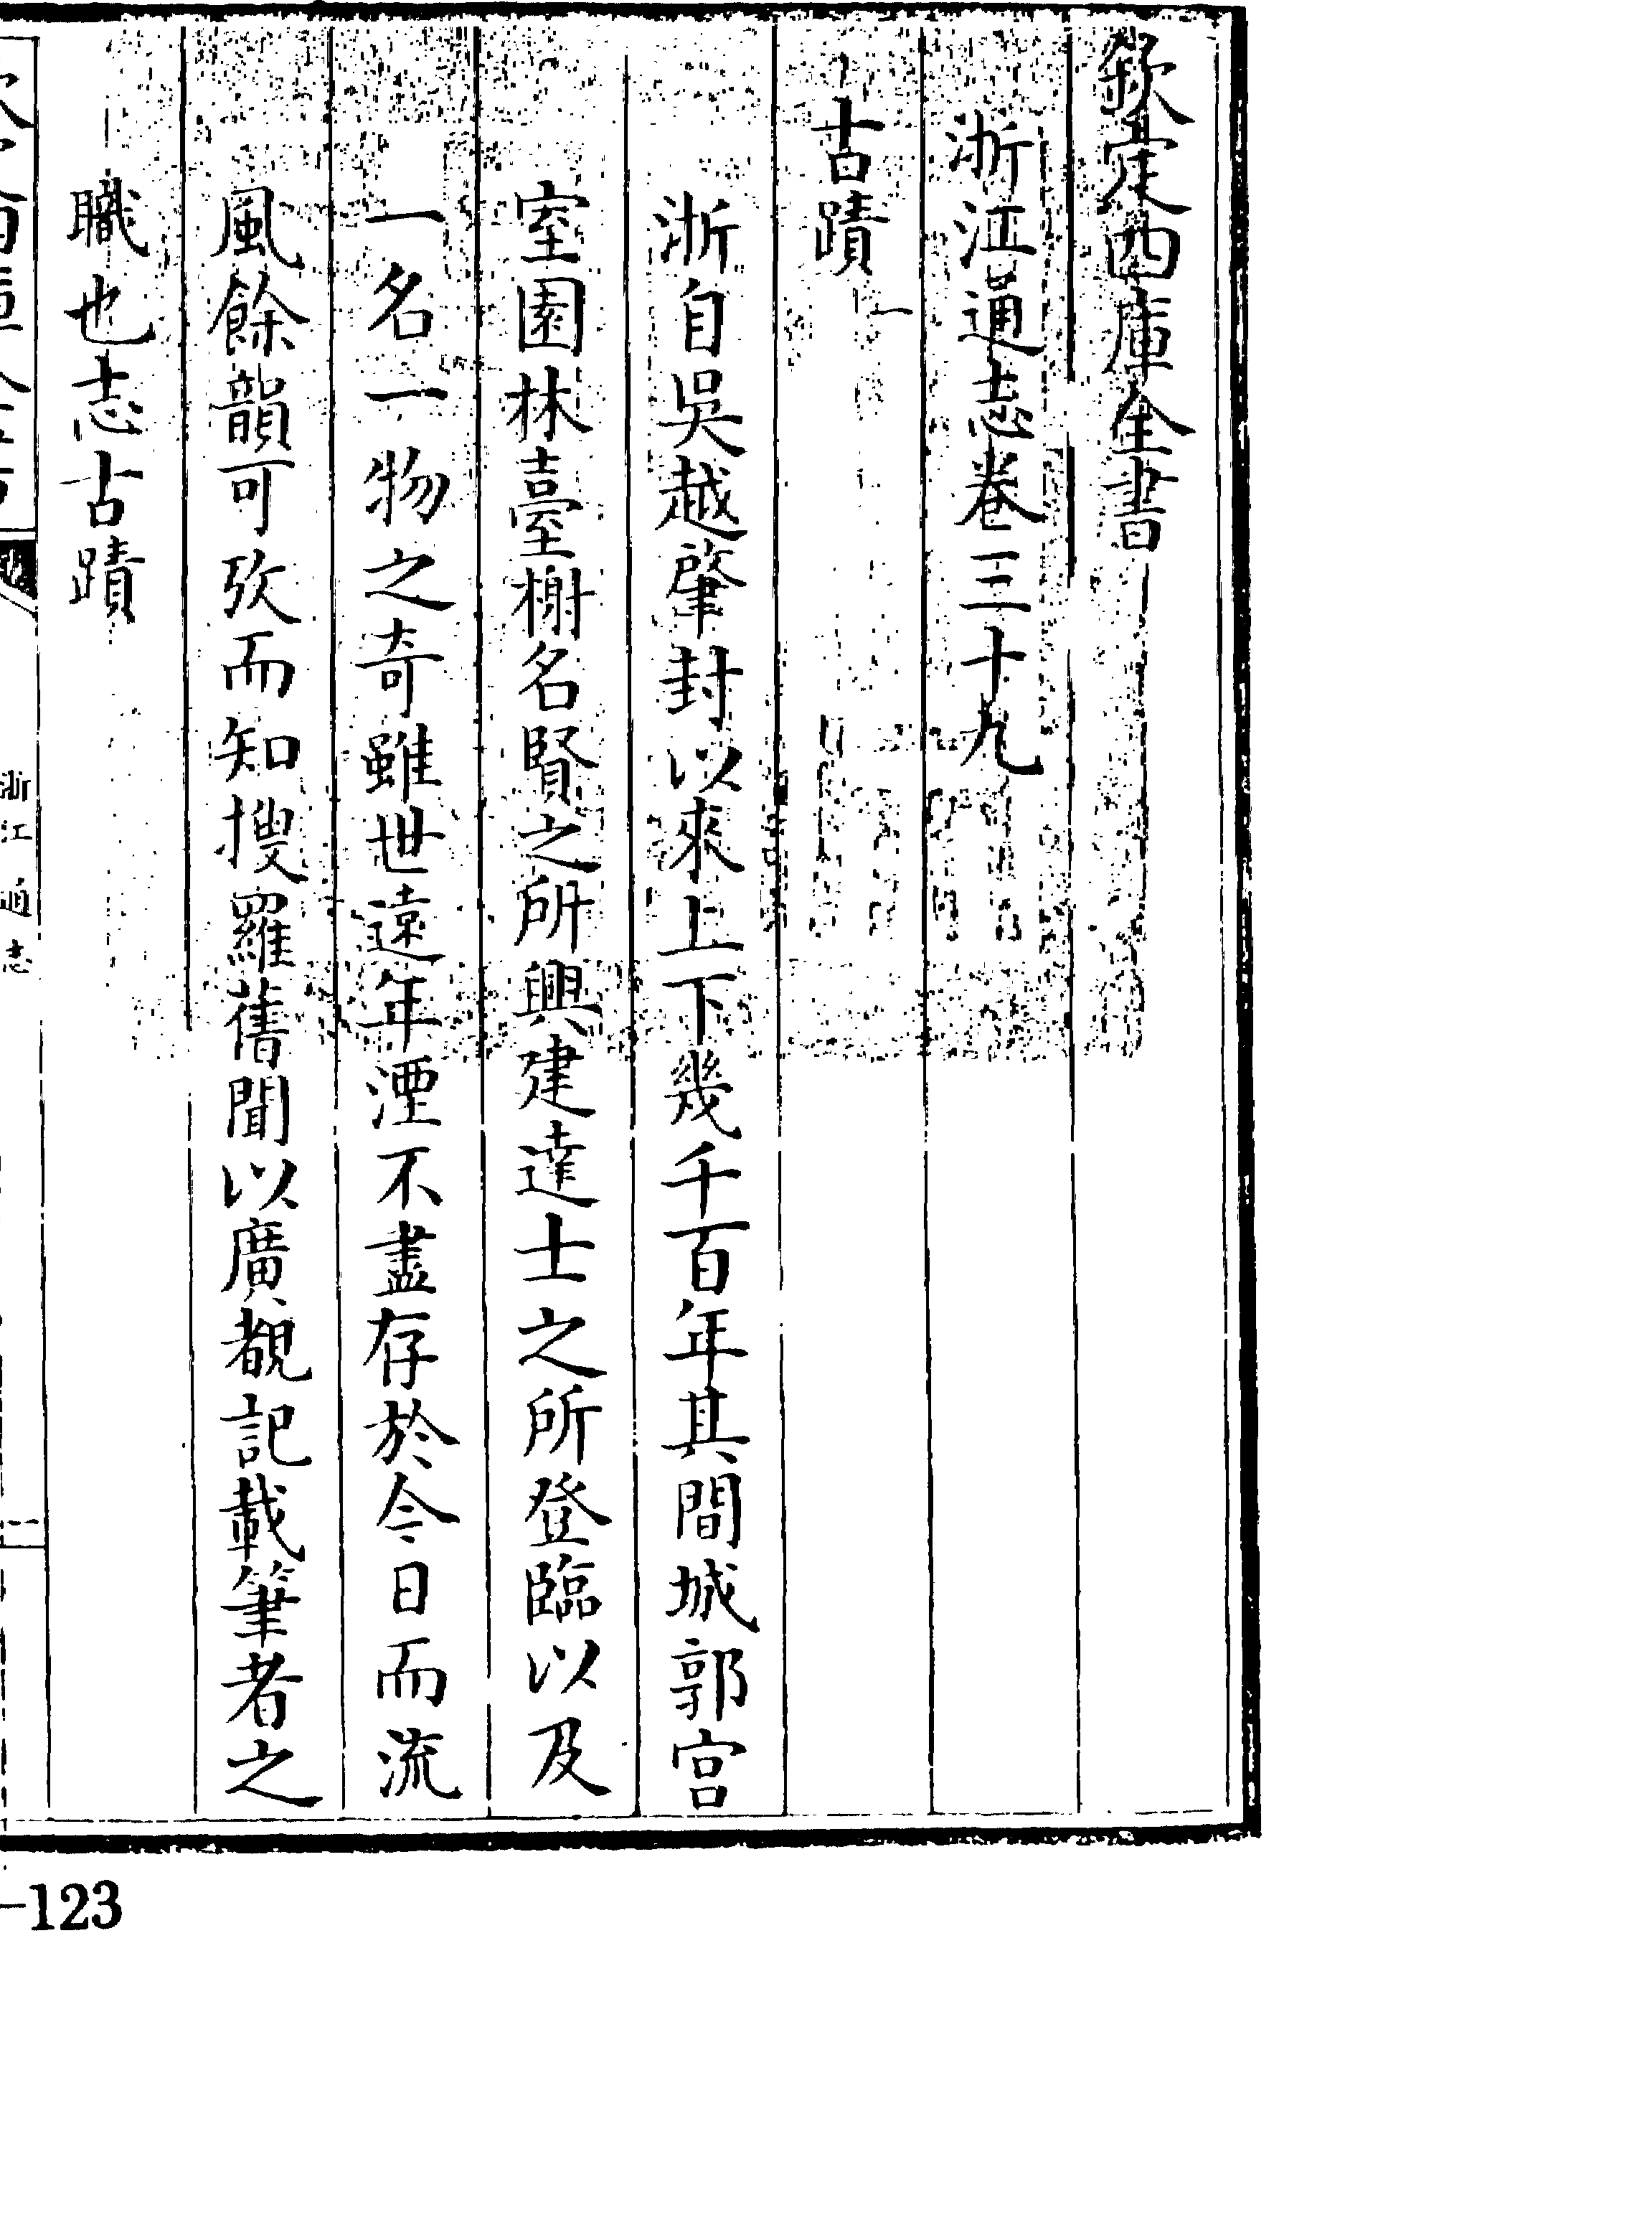 欽定四庫全書
浙江通志卷三十九
古蹟一
浙自吳越肇封以來上下幾千百年其間城郭宫
室園林臺榭名賢之所興建達士之所登臨以及
一名一物之奇雖世遠年湮不盡存於今日而流
風餘韻可攷而知搜羅舊聞以廣覩記載筆者之
職也志古蹟
浙江通志
一
-123